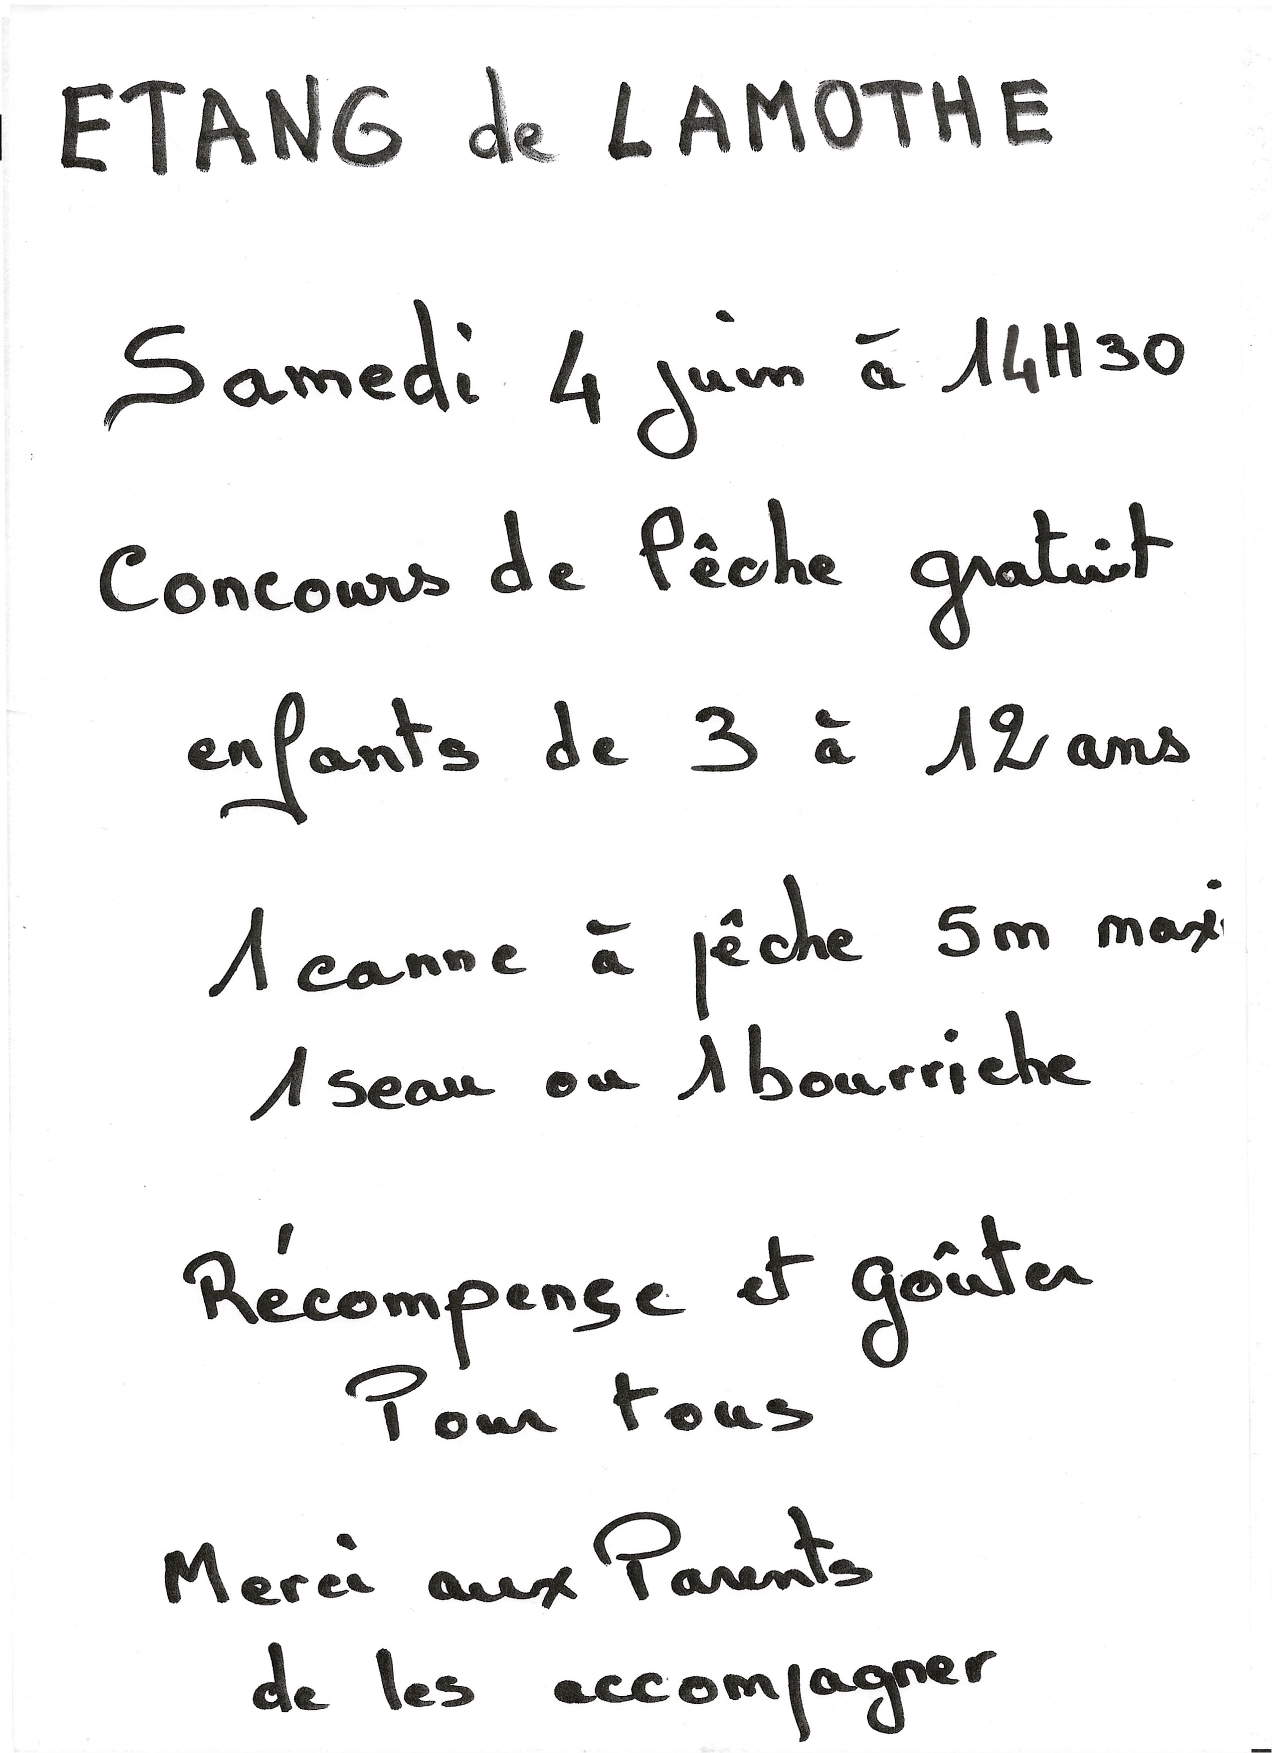 ETANG de LAMOTHE
Samedi 4 juin à 14H30
Concours de Pêche gratuit
enfants de 3 à 12 ans
1 canne à pêche 5m maxi
1 seau ou 1 bourriche
Récompense et goûter
Pour tous
Merci aux Parents
de les accompagner